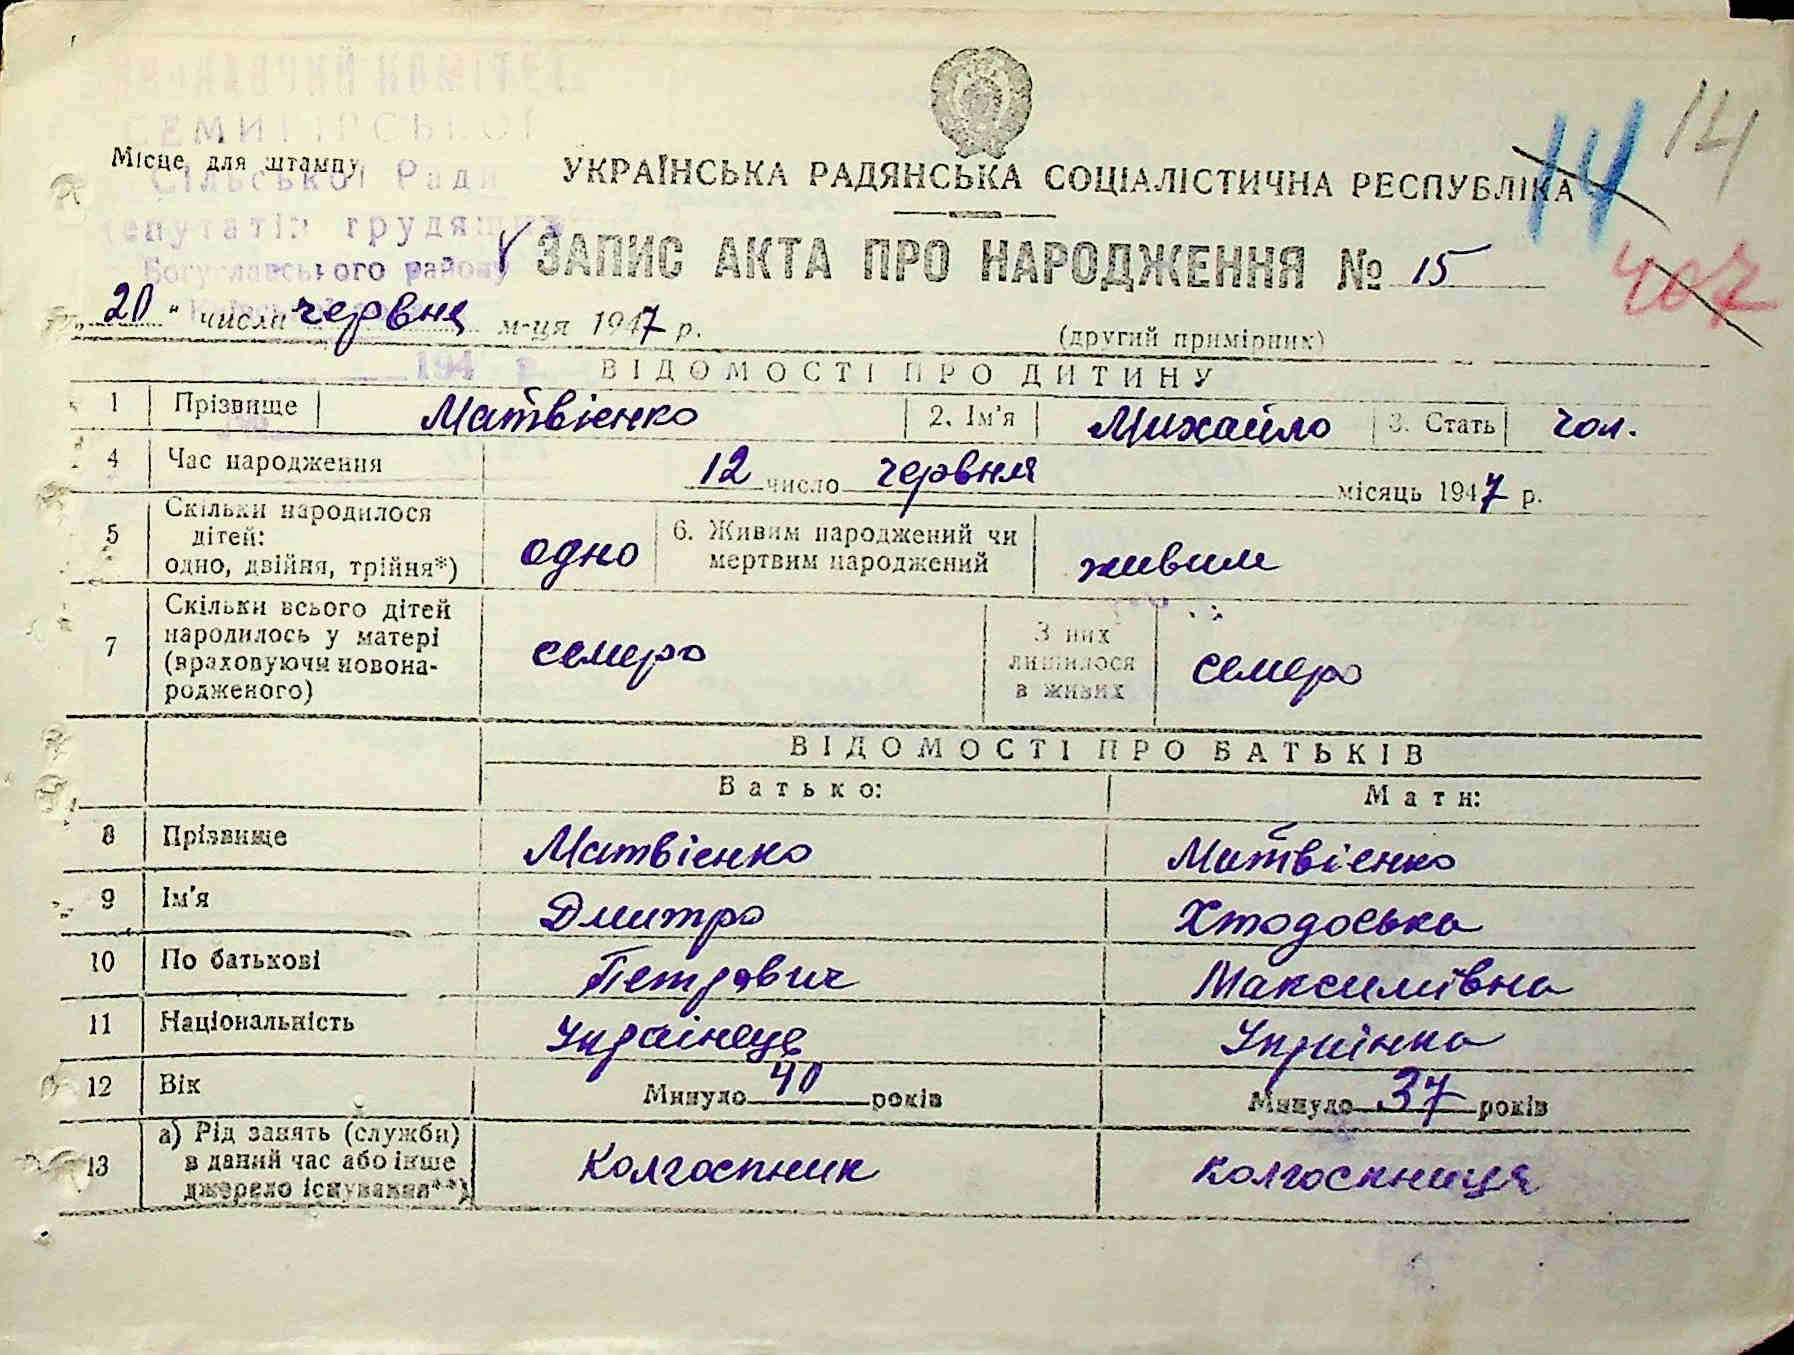 14
14
СЕМИГІРСЬКОЇ
Місце для штампу
Сільської Ради
УКРАЇНСЬКА РАДЯНСЬКА СОЦІАЛІСТИЧНА РЕСПУБЛІКА
депутатів трудящих
ЗАПИС АКТА ПРО НАРОДЖЕННЯ № 15
407
Богуславського району
„20" числа червня м-ця 1947 р.
(другий примірник)
194 р.
ВІДОМОСТІ ПРО ДИТИНУ
1 Прізвище Матвієнко 2. Ім'я Михайло 3. Стать чол.
4 Час народження 12 число червня місяць 1947 р.
5 Скільки народилося дітей: одно, двійня, трійня*) одно 6. Живим народжений чи мертвим народжений живим
7 Скільки всього дітей народилось у матері (враховуючи новонародженого) семеро З них лишилося в живих семеро
ВІДОМОСТІ ПРО БАТЬКІВ
Батько: Мати:
8 Прізвище Матвієнко Матвієнко
9 Ім'я Дмитро Хтодоська
10 По батькові Петрович Максимівна
11 Національність Українець Українка
12 Вік Минуло 40 років Минуло 37 років
13 а) Рід занять (служби) в даний час або інше джерело існування**) Колгоспник колгоспниця